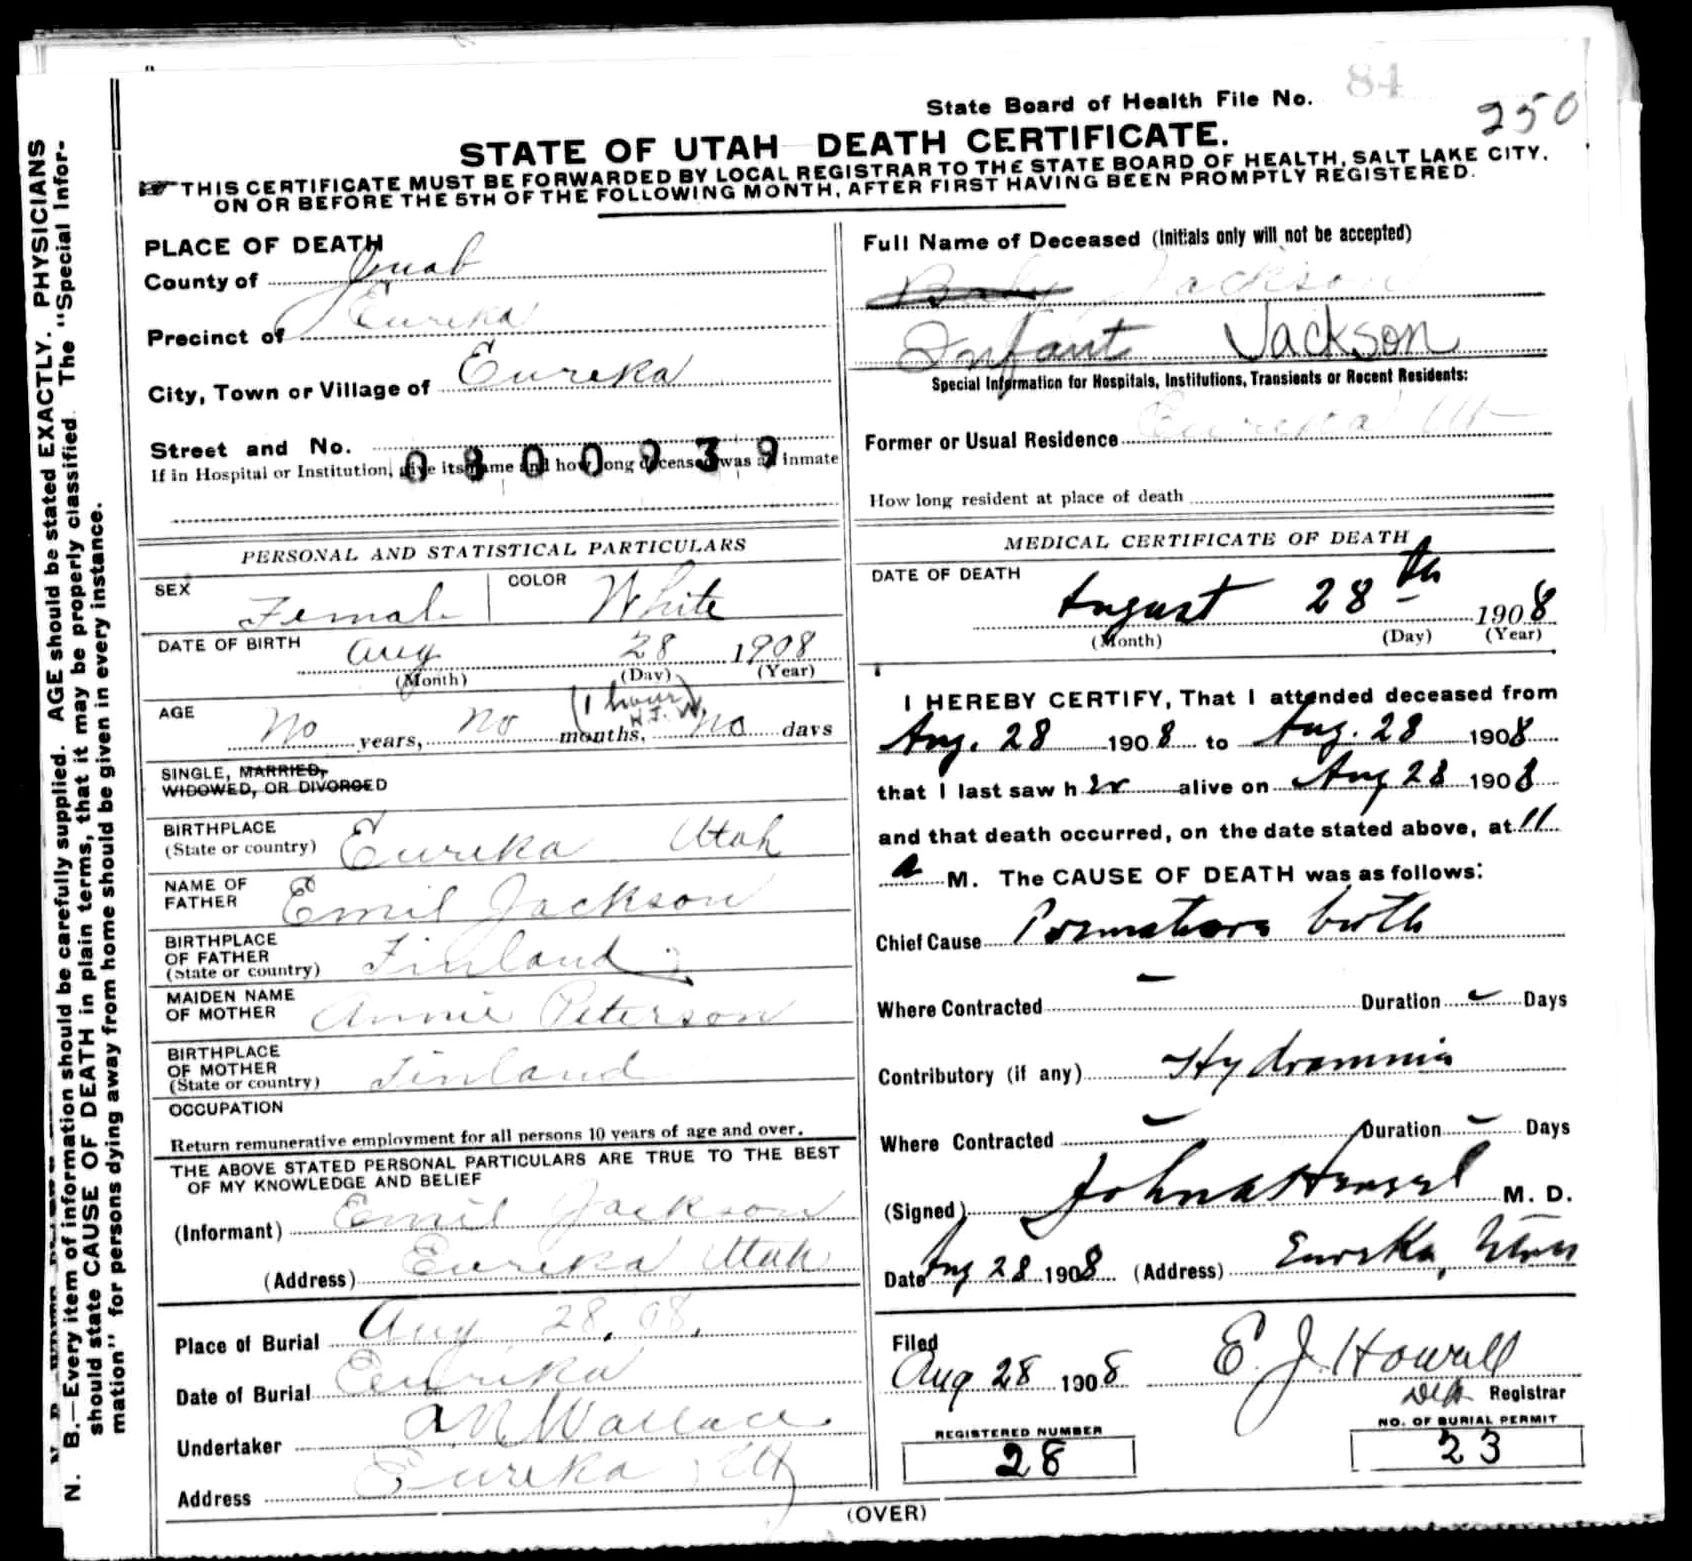 State Board of Health File No. 84
250
STATE OF UTAH DEATH CERTIFICATE.
THIS CERTIFICATE MUST BE FORWARDED BY LOCAL REGISTRAR TO THE STATE BOARD OF HEALTH, SALT LAKE CITY,
ON OR BEFORE THE 5TH OF THE FOLLOWING MONTH, AFTER FIRST HAVING BEEN PROMPTLY REGISTERED.
N. B.—Every item of information should be carefully supplied. AGE should be stated EXACTLY. PHYSICIANS
should state CAUSE OF DEATH in plain terms, that it may be properly classified. The "Special Infor-
mation" for persons dying away from home should be given in every instance.
PLACE OF DEATH
County of Juab
Precinct of Eureka
City, Town or Village of Eureka
Street and No.
0800939
If in Hospital or Institution, give its name and how long deceased was an inmate
PERSONAL AND STATISTICAL PARTICULARS
SEX Female COLOR White
DATE OF BIRTH Aug 28 1908
(Month) (Day) (Year)
(1 hour)
H.J.W.
AGE No years, No months, No days
SINGLE, MARRIED,
WIDOWED, OR DIVORCED
BIRTHPLACE
(State or country) Eureka Utah
NAME OF
FATHER Emil Jackson
BIRTHPLACE
OF FATHER
(State or country) Finland
MAIDEN NAME
OF MOTHER Annie Peterson
BIRTHPLACE
OF MOTHER
(State or country) Finland
OCCUPATION
Return remunerative employment for all persons 10 years of age and over.
THE ABOVE STATED PERSONAL PARTICULARS ARE TRUE TO THE BEST
OF MY KNOWLEDGE AND BELIEF
(Informant) Emil Jackson
(Address) Eureka Utah
Place of Burial Aug 28, 08.
Date of Burial Eureka
Undertaker A N Wallace
Address Eureka, Ut
Full Name of Deceased (Initials only will not be accepted)
Baby Jackson
Infant Jackson
Special Information for Hospitals, Institutions, Transients or Recent Residents:
Former or Usual Residence Eureka Ut
How long resident at place of death
MEDICAL CERTIFICATE OF DEATH
DATE OF DEATH
August 28th 1908
(Month) (Day) (Year)
I HEREBY CERTIFY, That I attended deceased from
Aug. 28 1908 to Aug. 28 1908
that I last saw her alive on Aug 28 1908
and that death occurred, on the date stated above, at 11
a M. The CAUSE OF DEATH was as follows:
Chief Cause Premature birth
Where Contracted - Duration - Days
Contributory (if any) Hydramnia
Where Contracted - Duration - Days
(Signed) John A Hensel M. D.
Date Aug 28 1908 (Address) Eureka, Utah
Filed
Aug 28 1908 E. J. Howell
Dep Registrar
REGISTERED NUMBER
28
NO. OF BURIAL PERMIT
23
(OVER)